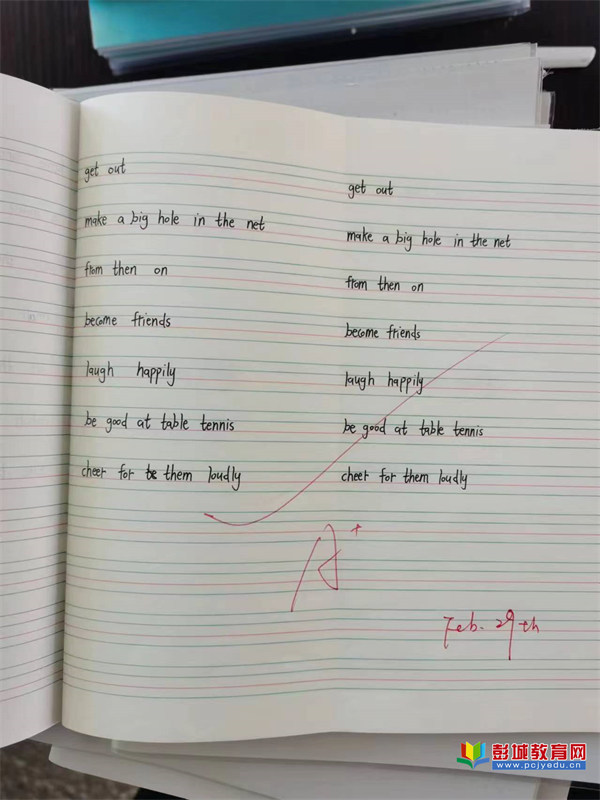 get out
make a big hole in the net
from then on
become friends
laugh happily
be good at table tennis
cheer for them loudly
get out
make a big hole in the net
from then on
become friends
laugh happily
be good at table tennis
cheer for them loudly
A+
Feb. 29th
彭城教育网
www.pcjyedu.cn